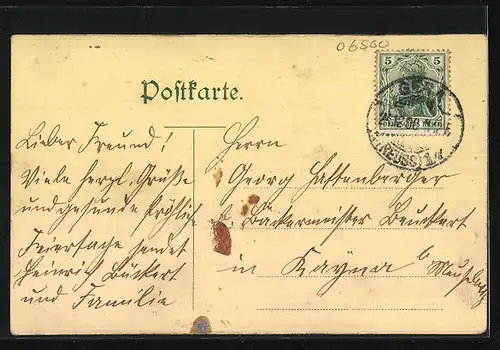 06500
Postkarte.
5 5
GERA
(REUSS)
Lieber Freund!
Viele herzl. Grüße
und gesunde fröhlich
Feiertage sendet
Heinrich Bückert
und Familie
Herrn
Georg Haftenberger
b. Bäckermeister Beuckert
in Kayna b